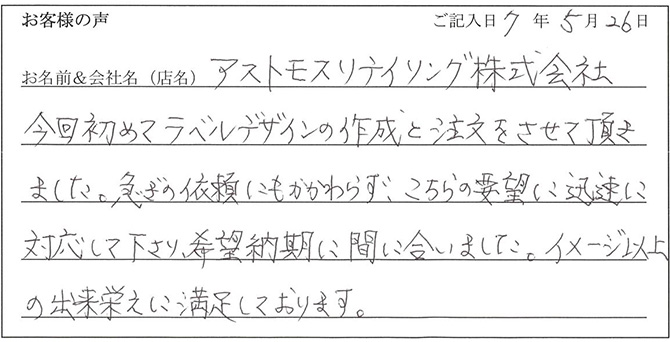 お客様の声 ご記入日 7 年 5 月 26 日
お名前&会社名（店名） アストモスリテイリング株式会社
今回初めてラベルデザインの作成と注文をさせて頂き
ました。急ぎの依頼にもかかわらず、こちらの要望に迅速に
対応して下さり、希望納期に間に合いました。イメージ以上
の出来栄えに満足しております。